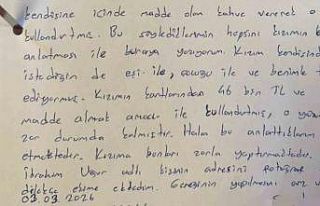 kendisine içinde madde olan kahve vererek o
kullandırtmış. Bu söylediklerimin hepsini kızımın b
anlatması ile buraya yazıyorum. Kızım kendisind
istediğin de eşi ile, çocuğu ile ve benimle t
ediyormuş. Kızımın kartlarından 46 bin TL ve
madde almak amacı ile kullandırtmış, o yüz
zor durumda kalmıştır. Hala bu anlattıkların
etmektedir. Kızıma bunları zorla yaptırmaktadır.
İbrahim Uğur adlı kişinin adresini
dilekçe ekime ekledim. Gereğinin yapılmasını arz v
03.03.2026